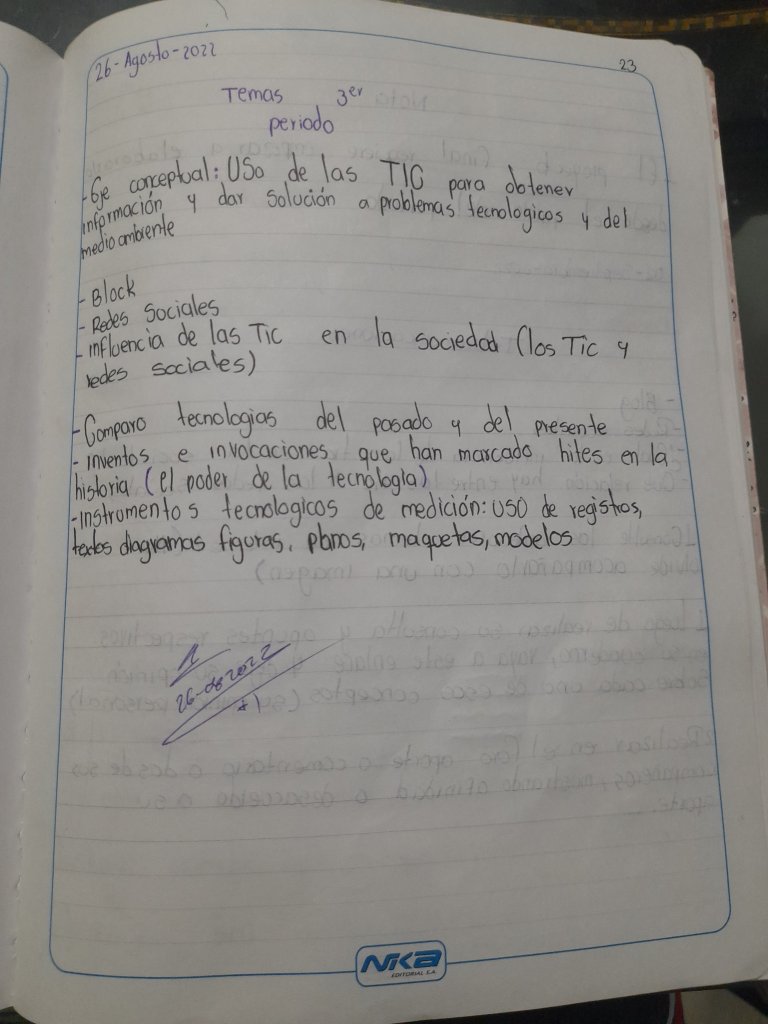 26-Agosto-2022
23
Temas 3er
periodo
-Eje conceptual: USo de las TIC para obtener
información y dar Solución a problemas tecnologicos y del
medio ambiente
-Block
-Redes Sociales
-influencia de las Tic en la sociedad (los Tic y
redes sociales)
-Comparo tecnologias del pasado y del presente
-inventos e invocaciones que han marcado hites en la
historia (el poder de la tecnologIa)
-instrumentos tecnologicos de medición: uso de registros,
textos diagramas figuras, planos, maquetas, modelos
26-08-2022
+1
NIKA
EDITORIAL S.A.